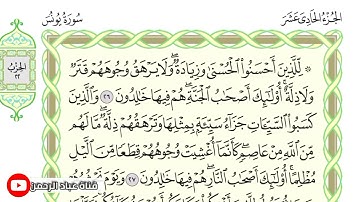 الجُزْءُ الحَادِى عَشَرَ
سُورَةُ يُونُسَ
۞ لِّلَّذِينَ أَحْسَنُوا۟ ٱلْحُسْنَىٰ وَزِيَادَةٌ ۖ وَلَا يَرْهَقُ وُجُوهَهُمْ قَتَرٌ
وَلَا ذِلَّةٌ ۚ أُو۟لَٰٓئِكَ أَصْحَٰبُ ٱلْجَنَّةِ ۖ هُمْ فِيهَا خَٰلِدُونَ ٢٦ وَٱلَّذِينَ
كَسَبُوا۟ ٱلسَّيِّـَٔاتِ جَزَآءُ سَيِّئَةٍۭ بِمِثْلِهَا وَتَرْهَقُهُمْ ذِلَّةٌ ۖ مَّا لَهُم
مِّنَ ٱللَّهِ مِنْ عَاصِمٍ ۖ كَأَنَّمَآ أُغْشِيَتْ وُجُوهُهُمْ قِطَعًا مِّنَ ٱلَّيْلِ
مُظْلِمًا ۚ أُو۟لَٰٓئِكَ أَصْحَٰبُ ٱلنَّارِ ۖ هُمْ فِيهَا خَٰلِدُونَ ٢٧ وَيَوْمَ
الحِزْبُ
٢٢
قناة عباد الرحمن